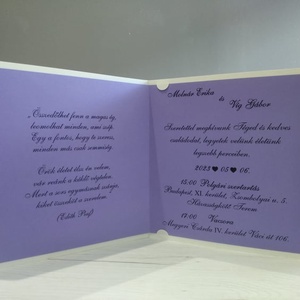 „Összedőlhet fenn a magas ég,
leomolhat minden, ami szép.
Egy a fontos, hogy te szeress,
minden más csak semmiség.
Örök életet élsz én velem,
vár natunk a költői végtelen.
Mert a sors egymásnak szánja,
kiket összeköt a szerelem."
(Edith Piaf)
Molnár Erika
és
Víg Gábor
Szeretettel meghívunk Téged és kedves
családodat, legyetek velünk életünk
legszebb perceiben.
2023 ♥ 05 ♥ 06.
15.00 Polgári szertartás
Budapest, XI. kerület, Zsombolyai u. 5.
Házasságkötő Terem
17.00 Vacsora
Magyari Csárda IV. kerület Váci út 106